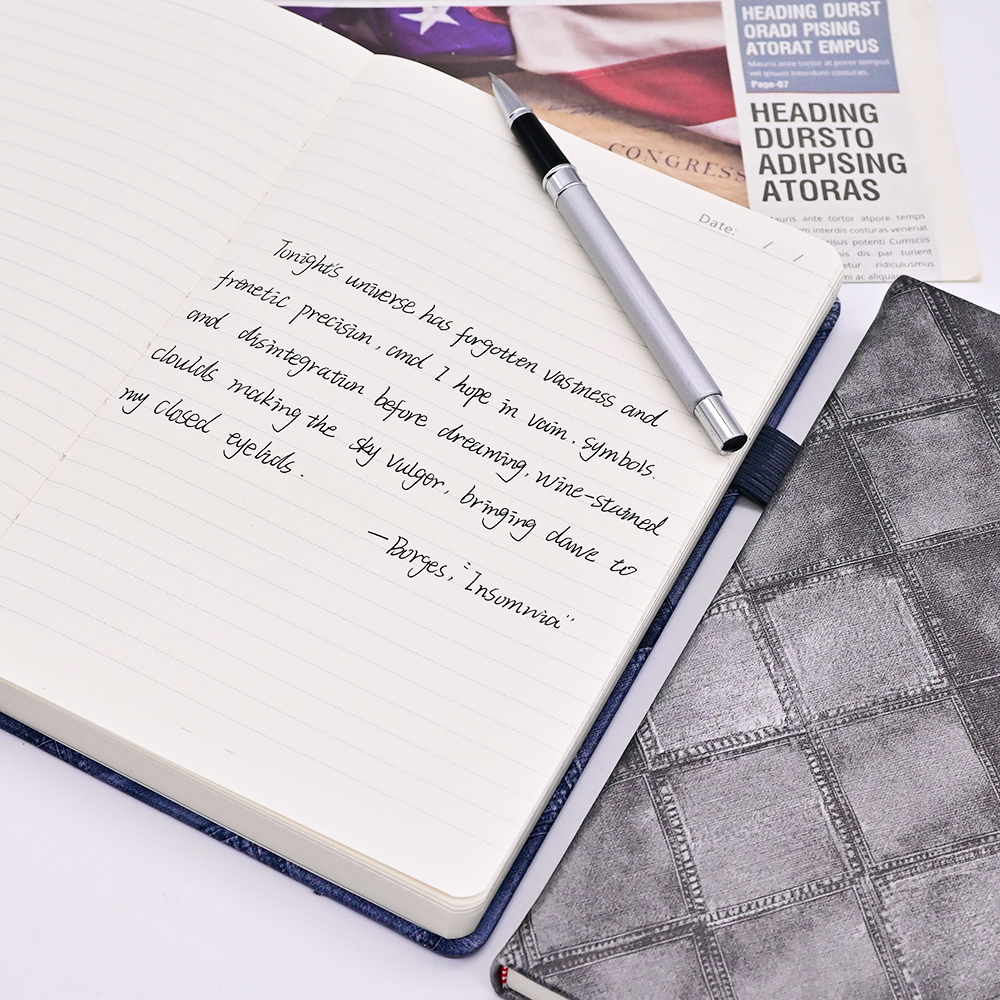 HEADING DURST
ORADI PISING
ATORAT EMPUS
Mauris ante tortor at porer tempus
vel ipsum interdum costuras.
Page-07
HEADING
DURSTO
ADIPISING
ATORAS
auris ante tortor atpore temps
interdis costuras venenat
risus potenti Cumsciis
dis par turient
etur ridiculusmus
mi ac aliquam
CONGRESS
Date: / /
Tonight's universe has forgotten vastness and
frenetic precision, and I hope in vain, symbols.
and disintegration before dreaming, wine-stained
clouds making the sky vulgar, bringing dawe to
my closed eyelids.
—Borges, "Insomnia"